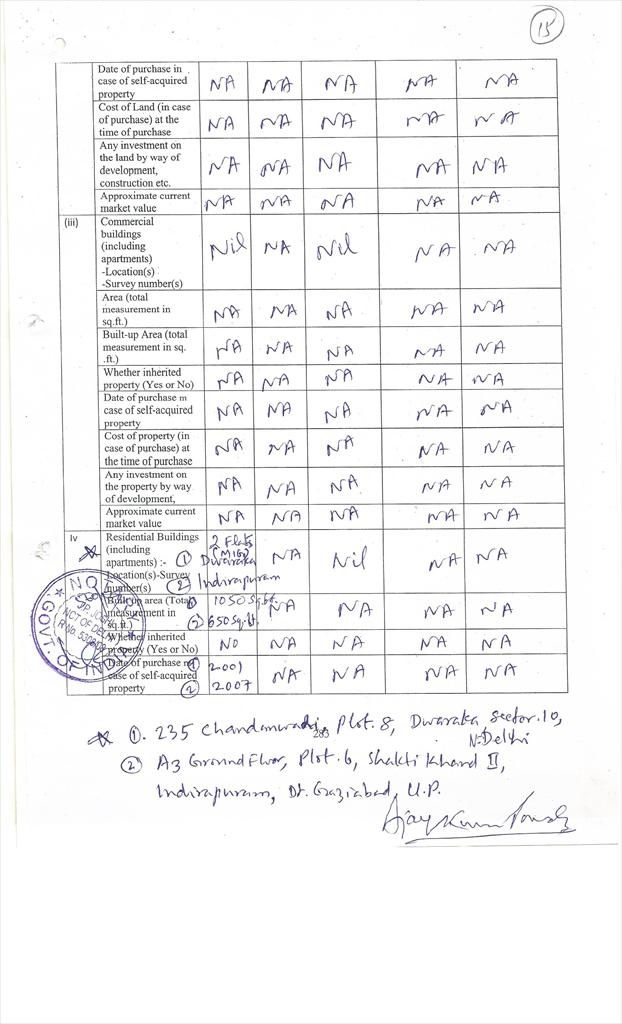 15
Date of purchase in case of self-acquired property NA NA NA NA NA
Cost of Land (in case of purchase) at the time of purchase NA NA NA NA NA
Any investment on the land by way of development, construction etc. NA NA NA NA NA
Approximate current market value NA NA NA NA NA
(iii) Commercial buildings (including apartments) -Location(s) -Survey number(s) Nil NA Nil NA NA
Area (total measurement in sq.ft.) NA NA NA NA NA
Built-up Area (total measurement in sq. .ft.) NA NA NA NA NA
Whether inherited property (Yes or No) NA NA NA NA NA
Date of purchase m case of self-acquired property NA NA NA NA NA
Cost of property (in case of purchase) at the time of purchase NA NA NA NA NA
Any investment on the property by way of development, NA NA NA NA NA
Approximate current market value NA NA NA NA NA
iv Residential Buildings (including apartments) :- Location(s)-Survey number(s) 2 Flats (MIG) ① Dwaraka ② Indirapuram NA Nil NA NA
Built-up area (Total measurement in sq.ft.) ① 1050 Sq.ft. ② 650 Sq.ft. NA NA NA NA
Whether inherited property (Yes or No) No NA NA NA NA
Date of purchase m case of self-acquired property ① 2001 ② 2007 NA NA NA NA
NOTARY
J.P. JOSHI
NCT OF DELHI
GOVT. OF INDIA
①. 235 Plot. 8, Dwaraka Sector. 10,
283
N. Delhi
② A3 Ground Floor, Plot. 6, Shakti Khand II,
Indirapuram, Dt. Gaziabad, U.P.